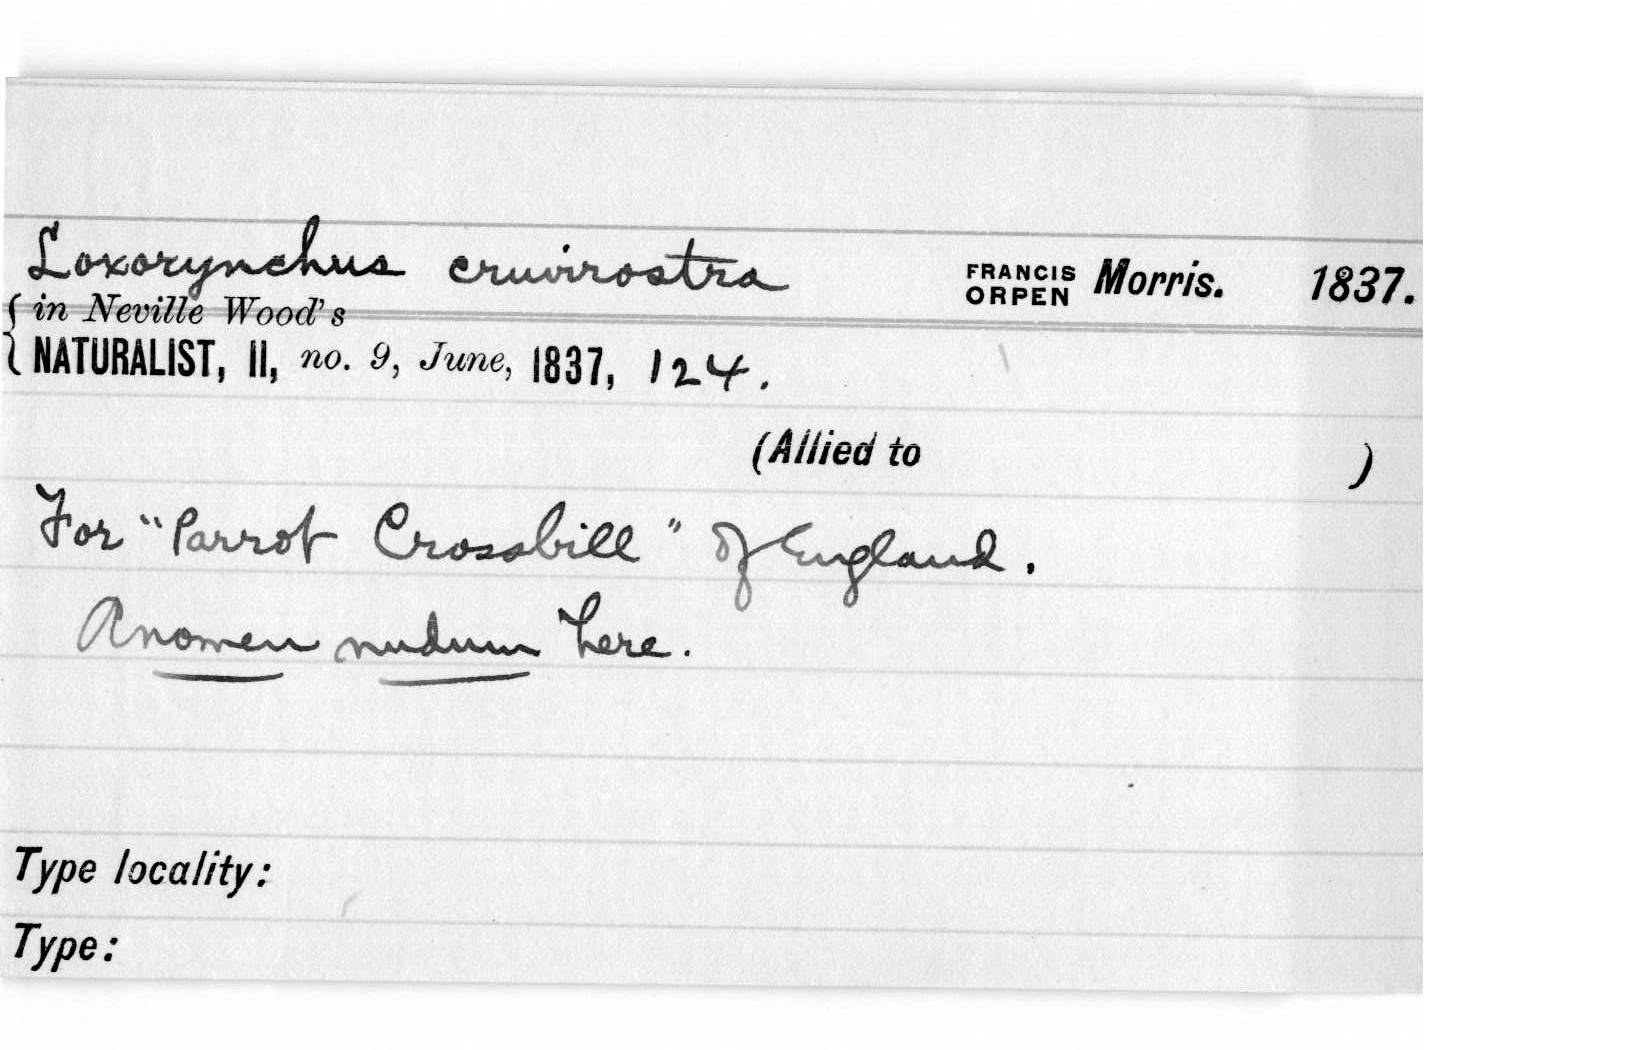 Loxorynchus cruvirostra FRANCIS ORPEN Morris. 1837.
{ in Neville Wood's
NATURALIST, II, no. 9, June, 1837, 124.
(Allied to )
For "Parrot Crossbill" of England.
A nomen nudum here.
Type locality:
Type: